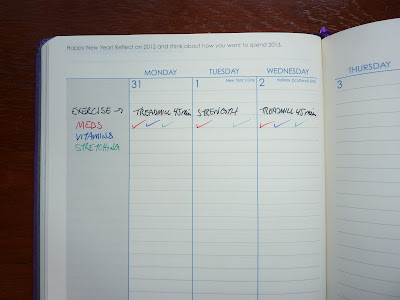 Happy New Year! Reflect on 2012 and think about how you want to spend 2013.
MONDAY TUESDAY WEDNESDAY THURSDAY
31 1 New Year's Day 2 Holiday (Scotland) 3
EXERCISE → TREADMILL 45min STRENGTH TREADMILL 45min
MEDS ✓ ✓ ✓ ✓ ✓ ✓ ✓ ✓
VITAMINS
STRETCHING